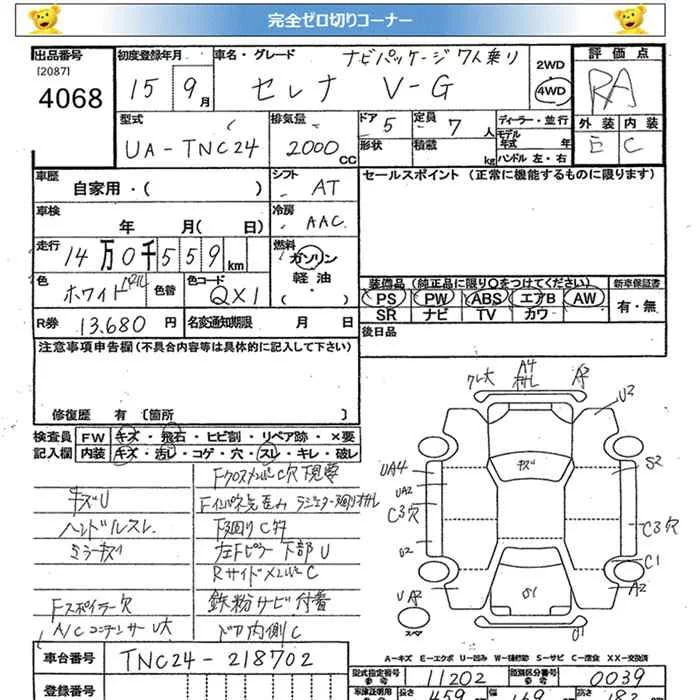 完全ゼロ切りコーナー
出品番号
[2087]
4068
初度登録年月
15 9月
車名・グレード
ナビパッケージ 7人乗り
セレナ V-G
2WD
4WD
評価点
RA
外装 内装
E C
型式
UA-TNC24
排気量
2000cc
ドア 5
形状
定員 7人
積載 kg
ディーラー・並行
モデル年式 年
ハンドル左・右
車歴
自家用・( )
シフト
AT
セールスポイント(正常に機能するものに限ります)
車検
年 月( 日)
冷房
AAC
走行
14万0千559km
燃料
ガソリン
軽油
( ・ )
色
ホワイトパール
色替
色コード
QX1
装備品(純正品に限り○をつけてください)
新車保証書
PS PW ABS エアB AW
有・無
SR ナビ TV カワ
R券 13,680円
名変通知期限 月 日
後日品
注意事項申告欄(不具合内容等は具体的に記入して下さい)
修復歴 有[箇所 ]
検査員
記入欄
FW キズ・飛石・ヒビ割・リペア跡・×要
内装 キズ・汚レ・コゲ・穴・スレ・キレ・破レ
FクロスメンバーC穴下現要
キズU
ハンドルスレ
下廻りCサ
ミラーキズ
左Fピラー下部U
RサイドメンバーC
Fスポイラー欠
鉄粉サビ付着
A/Cコンデンサー U大
ドア内側C
クレ大
A4
A2
U2
UA4
キズ
S2
UA2
C3穴
C3穴
U2
C1
UA2
A2
U1
U1
スペア
A-キズ E-エクボ U-凹み W-補修跡 S-サビ C-腐食 XX-交換済
車台番号
TNC24-218702
型式指定番号
参考
11202
類別区分番号
参考
0039
登録番号
車庫証明用
長さ
459
幅
169
高さ
182